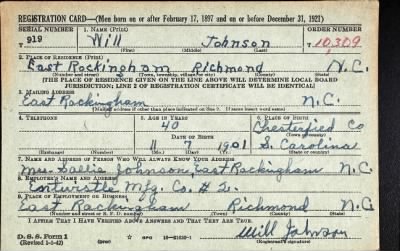 REGISTRATION CARD—(Men born on or after February 17, 1897 and on or before December 31, 1921)
SERIAL NUMBER 1. NAME (Print) ORDER NUMBER
919 Will Johnson 10,309
(First) (Middle) (Last)
2. PLACE OF RESIDENCE (Print)
East Rockingham Richmond N.C.
(Number and street) (Town, township, village, or city) (County) (State)
[THE PLACE OF RESIDENCE GIVEN ON THE LINE ABOVE WILL DETERMINE LOCAL BOARD
JURISDICTION; LINE 2 OF REGISTRATION CERTIFICATE WILL BE IDENTICAL]
3. MAILING ADDRESS
East Rockingham N.C.
[Mailing address if other than place indicated on line 2. If same insert word same]
4. TELEPHONE 5. AGE IN YEARS 6. PLACE OF BIRTH
40 Chesterfield Co
DATE OF BIRTH (Town or county)
11 7 1901 S. Carolina
(Exchange) (Number) (Mo.) (Day) (Yr.) (State or country)
7. NAME AND ADDRESS OF PERSON WHO WILL ALWAYS KNOW YOUR ADDRESS
Mrs. Sallie Johnson, East Rockingham N.C.
8. EMPLOYER'S NAME AND ADDRESS
Entwistle Mfg. Co # 2.
9. PLACE OF EMPLOYMENT OR BUSINESS
East Rockingham Richmond N.C.
(Number and street or R. F. D. number) (Town) (County) (State)
I AFFIRM THAT I HAVE VERIFIED ABOVE ANSWERS AND THAT THEY ARE TRUE.
D. S. S. Form 1
(Revised 1-1-42) (over) GPO 16—21630-1
Will Johnson
(Registrant's signature)